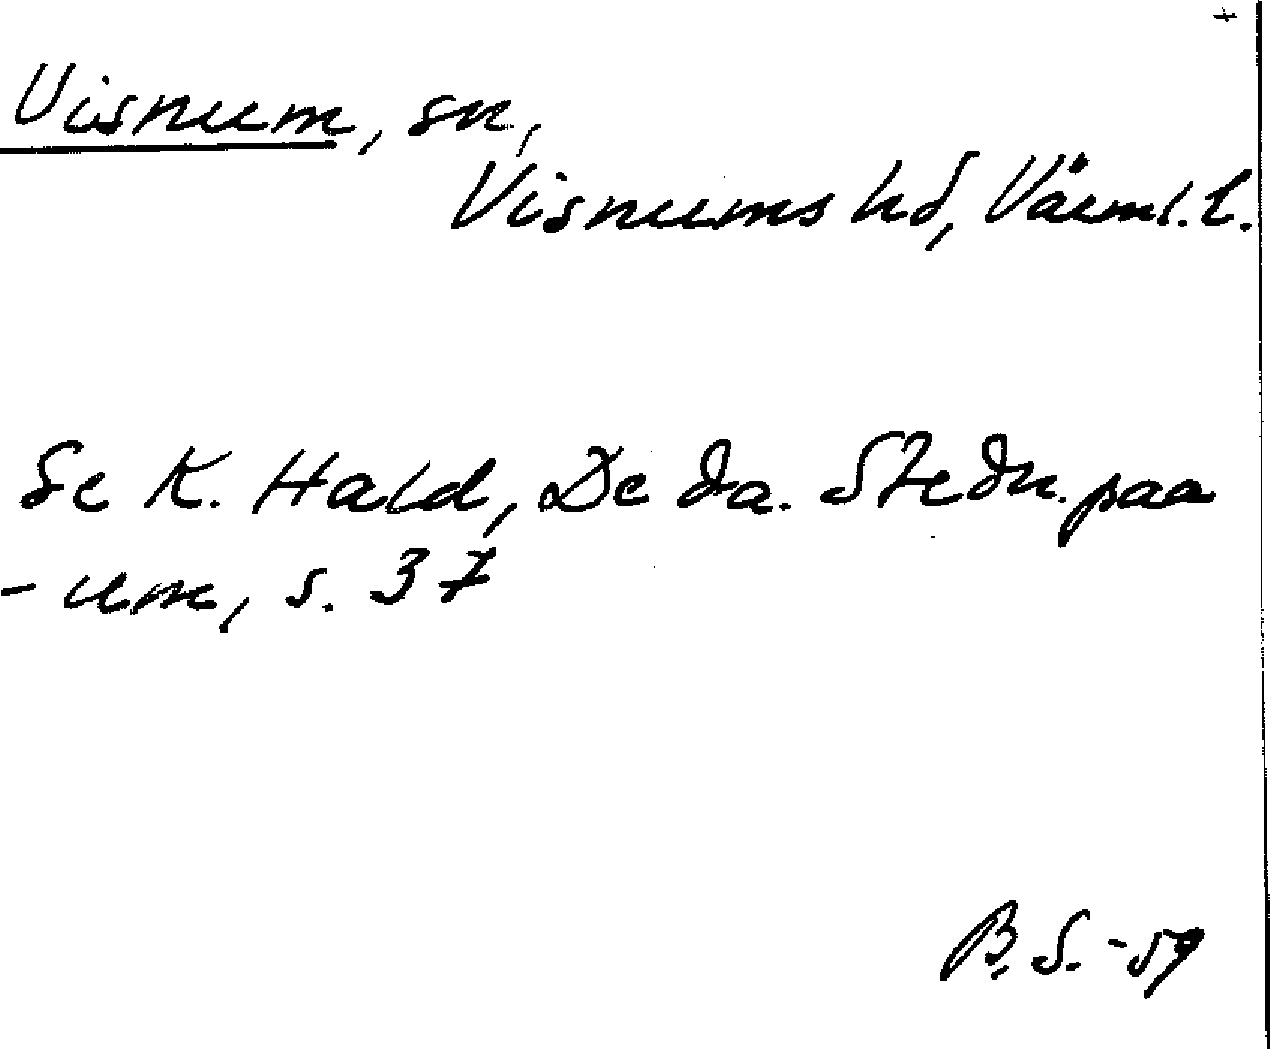 Visnum, sn,
Visnums hd, Värml. l.
Se K. Hald, De da. Stedn. paa
- um, s. 37
B. S. - 59